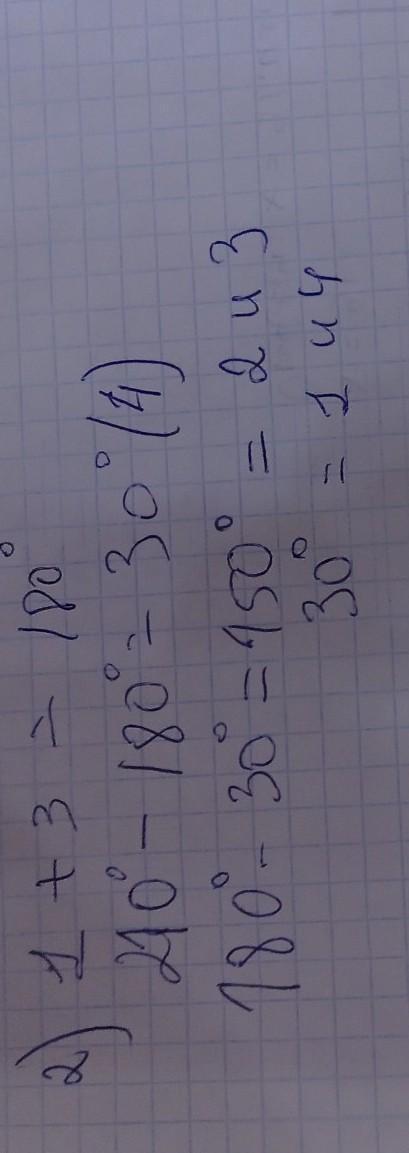 2) 1 + 3 = 180°
210° - 180° = 30° (4)
180° - 30° = 150° = 2 и 3
30° = 1 и 4